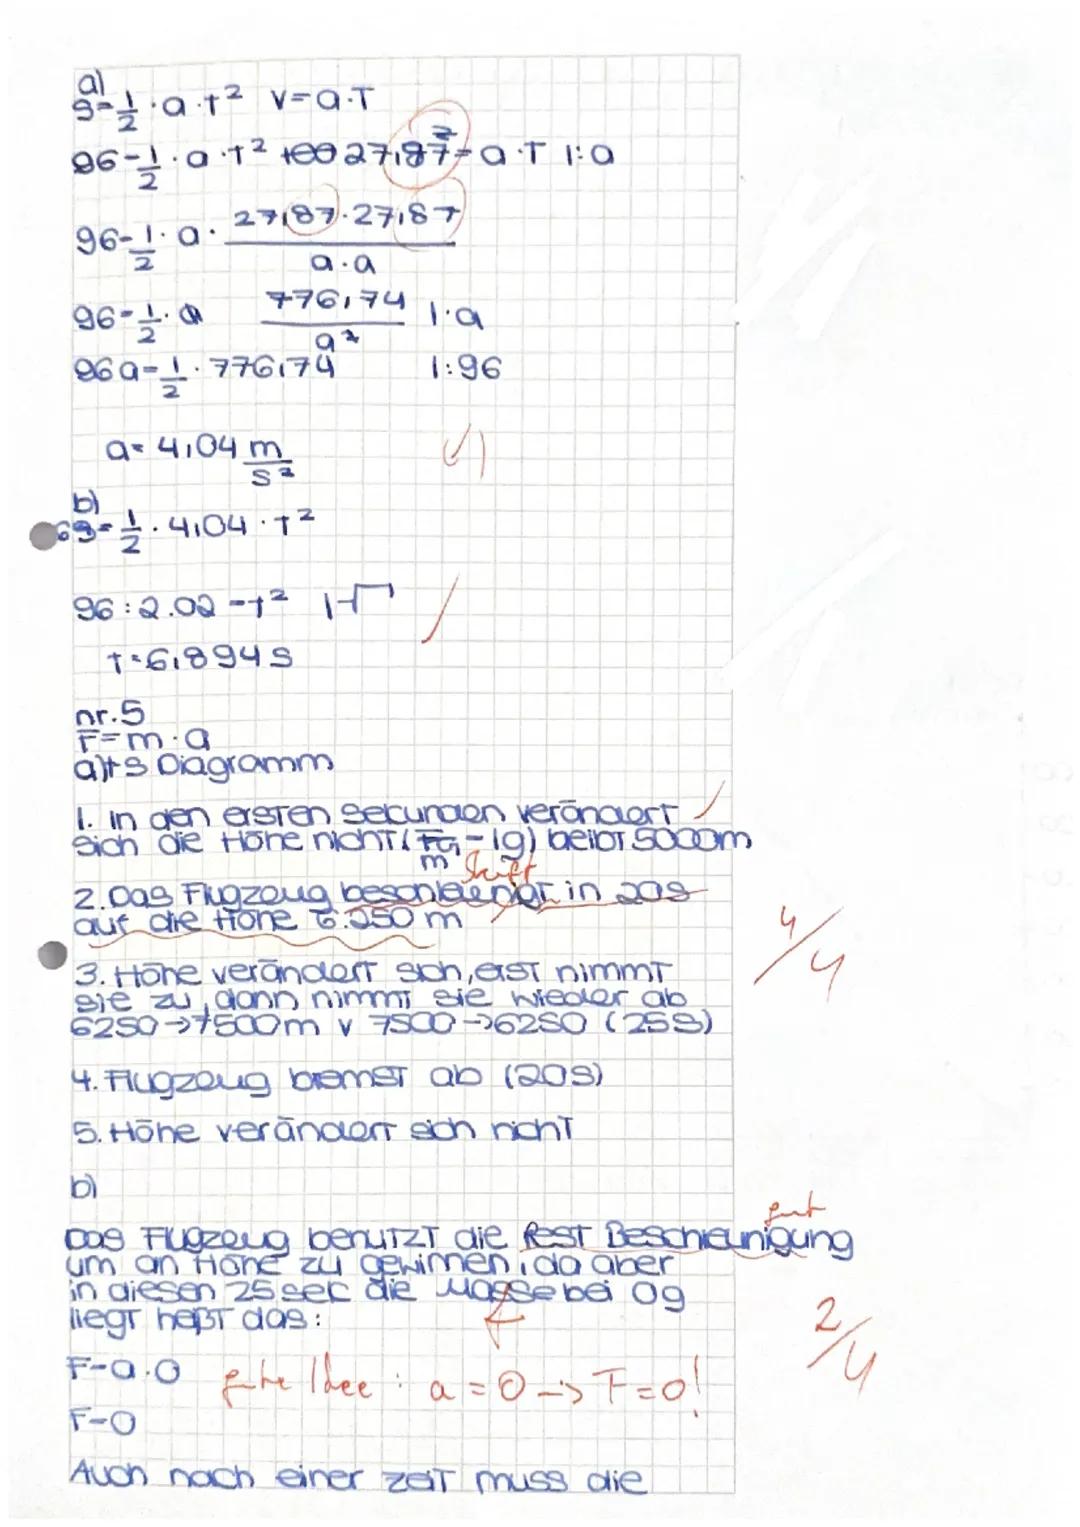 a)
s=1/2 · a · t² v=a·T
96=1/2 · a · t² 27,87=a·T |:a
96=1/2 · a · 27,87·27,87/a·a
96=1/2 · a 776,74/a² |·a
96a=1/2 · 776,74 |:96
a=4,04 m/s²
b)
1/2 · 4,04 · t²
96:2.02=t² |√
t=6,894s
nr.5
F=m·a
a)ts Diagramm
1. in den ersten Sekunden verändert
sich die Höhe nicht (FG/m=1g) beibt 5000m
2. Das Flugzeug beschleunigt in 20s
auf die Höhe 6.250 m
4/4
3. Höhe verändert sich, erst nimmt
sie zu, dann nimmt sie wieder ab
6250→7500m v 7500→6250 (25s)
4. Flugzeug bremst ab (20s)
5. Höhe verändert sich nicht
b)
gut
Das Flugzeug benutzt die Rest Beschleunigung
um an Höhe zu gewinnen, da aber
in diesen 25 sek die Masse bei 0g
liegt heßt das:
2/4
F=a·0 gute Idee: a=0→F=0!
F=0
Auch nach einer zeit muss die